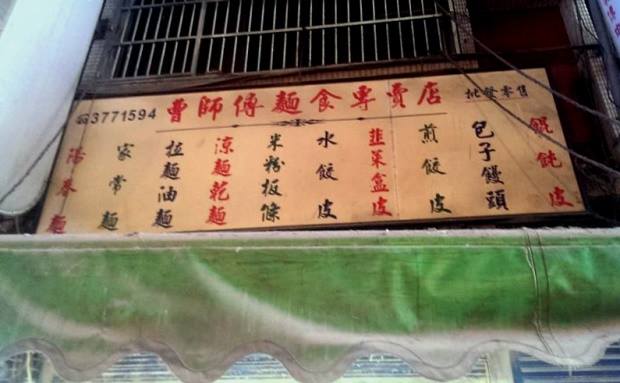 3771594 曹師傅麵食專賣店 批發零售
餛飩皮
包子饅頭
煎餃皮
韮菜盒皮
水餃皮
米粉板條
涼麵乾麵
拉麵油麵
家常麵
陽春麵